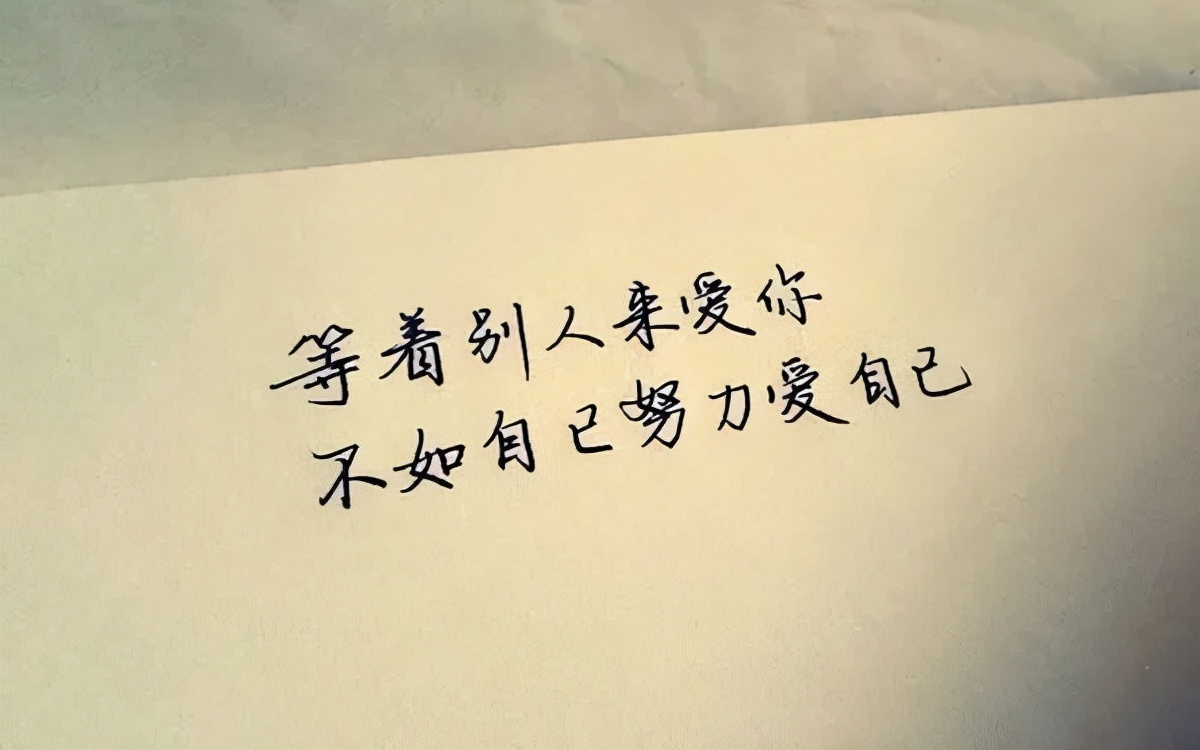 等着别人来爱你
不如自己努力爱自己